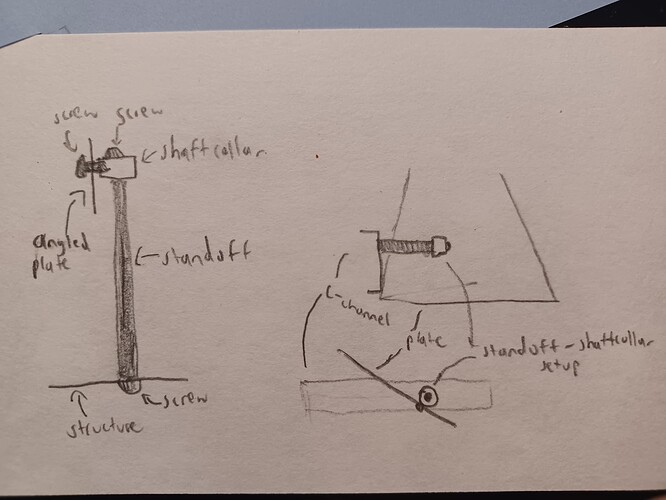 screw screw
shaftcollar
angled
plate
standoff
screw
structure
c-channel
plate
standoff-shaftcollar
setup